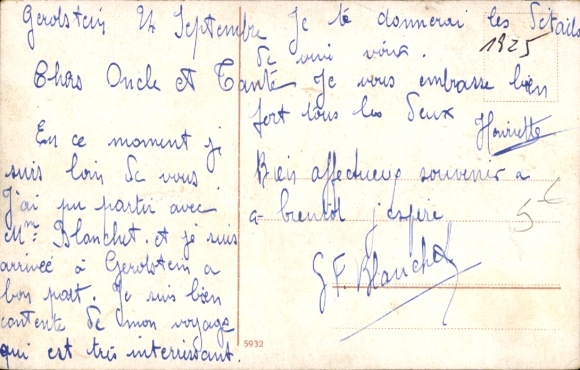 Gerolstein 24 Septembre
Chers Oncle et Tante
En ce moment je
suis loin de vous
J'ai pu partir avec
Mme Blanchet. et je suis
arrivée à Gerolstein a
bon port. Je suis bien
contente de mon voyage
qui est très interressant.
Je te donnerai les détails
de vive voix.
1925
Je vous embrasse bien
fort tous les deux
Henriette
Bien affectueux souvenir a
a bientot j'espère
G F. Blanchet
5€
5932